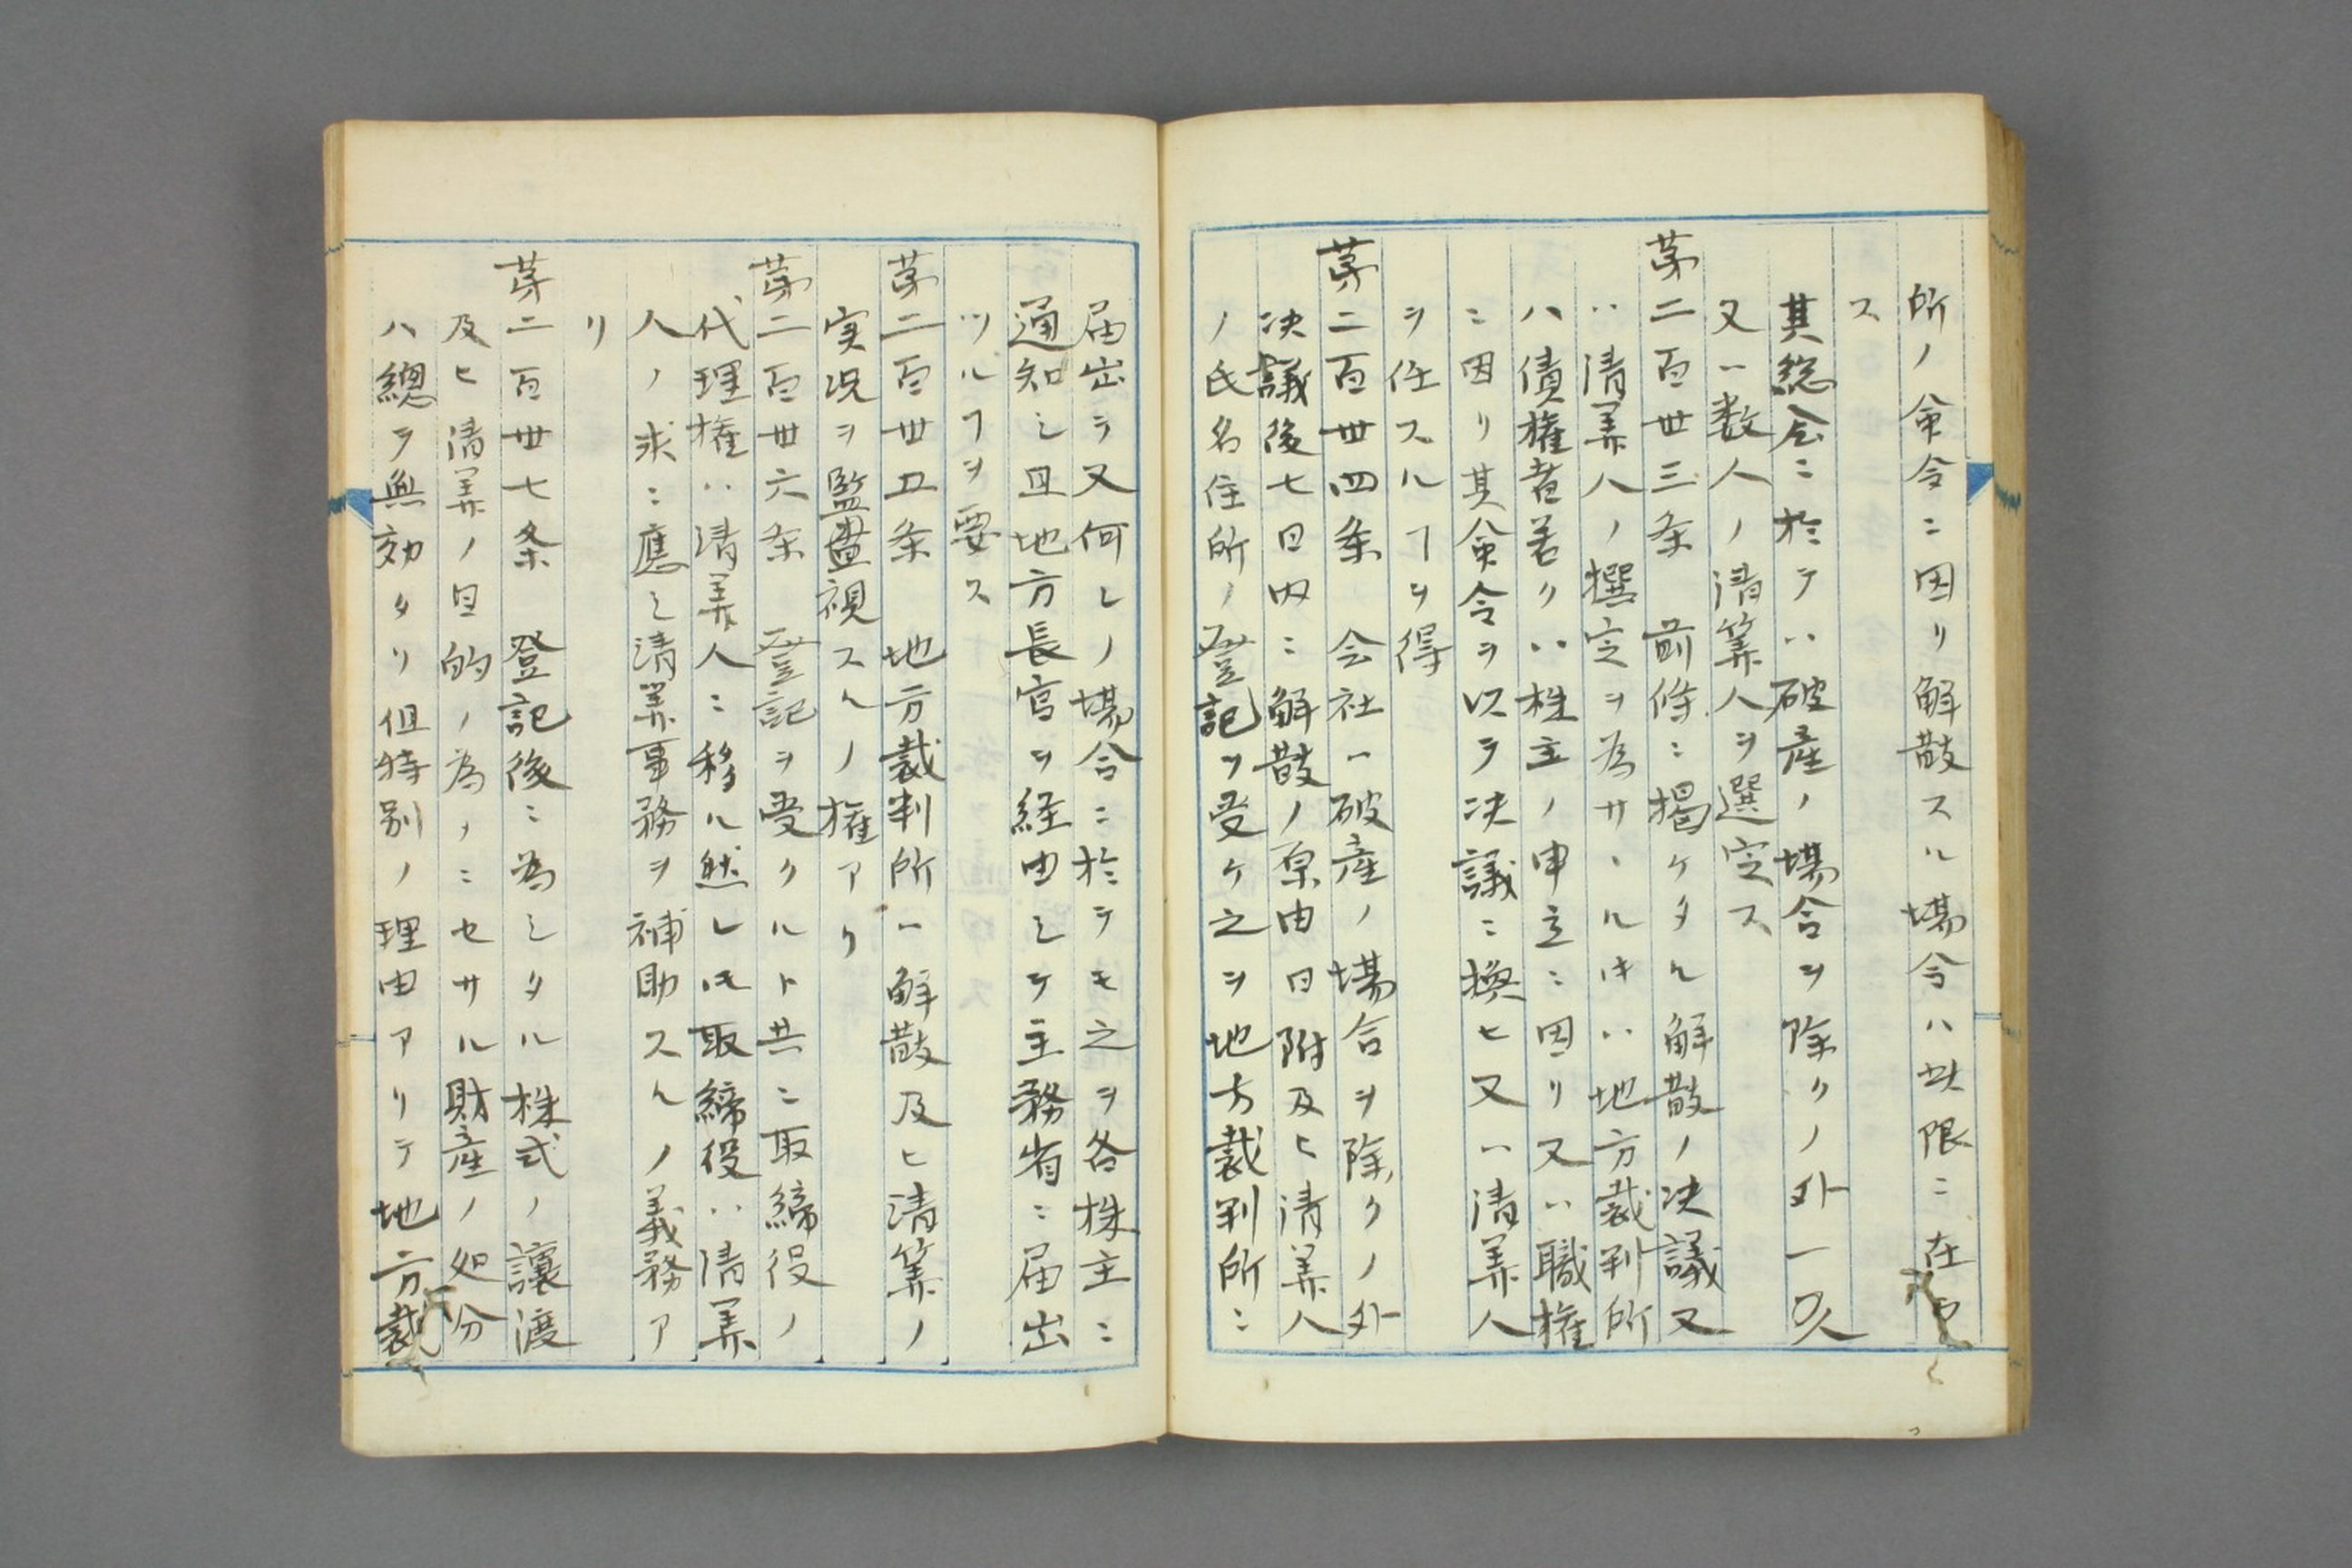 所ノ命令ニ因リ解散スル場合ハ此限ニ在ラ
ス
其総会ニ於テハ破産ノ場合ヲ除クノ外一人
又ハ数人ノ清算人ヲ選定ス
第二百卅三条　前條ニ掲ケタル解散ノ决議又
ハ清筭人ノ撰定ヲ為サヽルトキハ地方裁判所
ハ債権者若クハ株主ノ申立ニ因リ又ハ職権
ニ因リ其命令ヲ以テ决議ニ換ヒ又ハ清筭人
ヲ任スルヿヲ得
第二百卅四条　会社ハ破産ノ場合ヲ除クノ外
决議後七日内ニ解散ノ原由日附及ヒ清筭人
ノ氏名住所ノ登記ヲ受ケ之ヲ地方裁判所ニ
届出テ又何レノ場合ニ於テモ之ヲ各株主ニ
通知シ且地方長官ヲ経由シテ主務省ニ届出
ツルヿヲ要ス
第二百卅五条　地方裁判所ハ解散及ヒ清算ノ
実况ヲ監督視スルノ権アリ
第二百卅六条　登記ヲ受クルト共ニ取締役ノ
代理権ハ清筭人ニ移ル然レトモ取締役ハ清筭
人ノ求ニ應シ清筭事務ヲ補助スルノ義務ア
リ
第二百卅七条　登記後ニ為シタル株式ノ讓渡
及ヒ清筭ノ目的ノ為メニセサル財産ノ処分
ハ總テ無効タリ但特別ノ理由アリテ地方裁